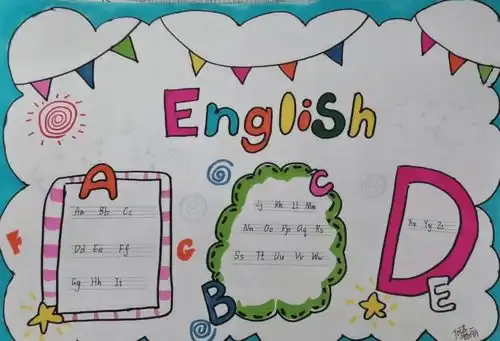 English
A
Aa Bb Cc
Dd Ee Ff
Gg Hh Ii
F
G
C
Jj Kk Ll Mm
Nn Oo Pp Qq Rr
Ss Tt Uu Vv Ww
B
D
Xx Yy Zz
E